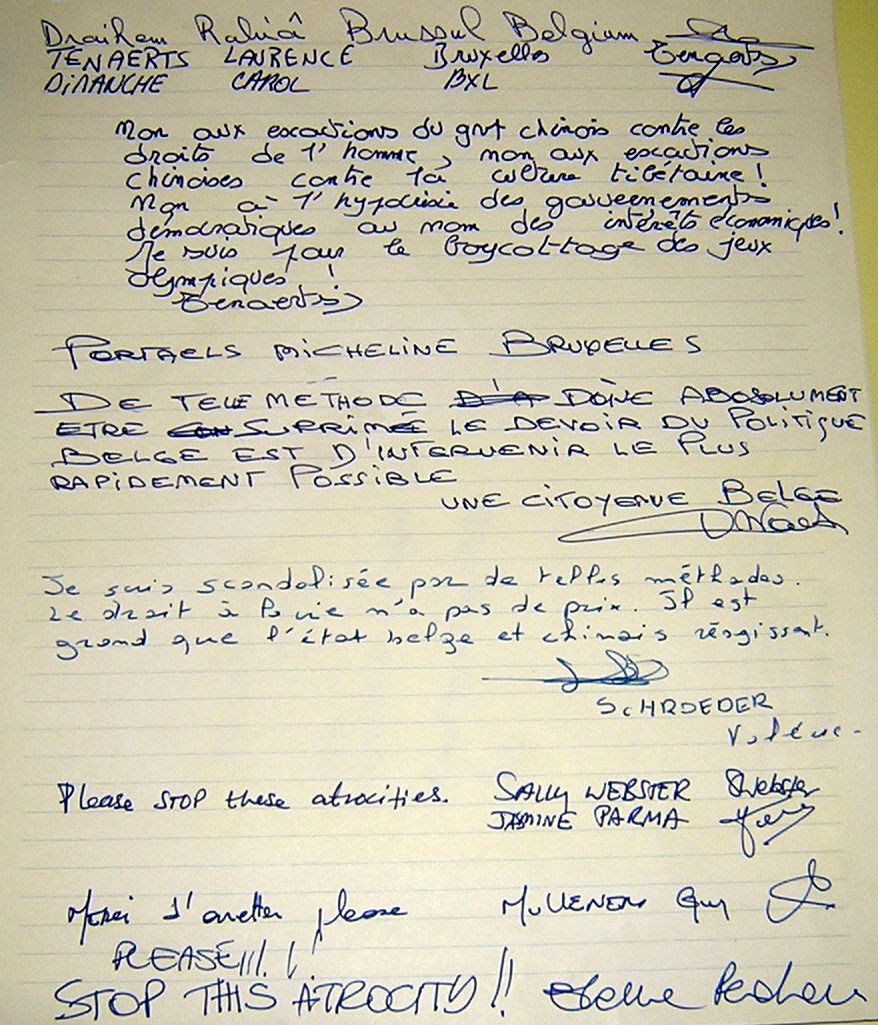 Draiham Rabiâ Brussel Belgium
TENAERTS LAURENCE Bruxelles Tenaerts
DIMANCHE CAROL BXL
Non aux excactions du gvt chinois contre les
droits de l'homme, non aux excactions
chinoises contre la culture tibétaine!
Non à l'hypocrisie des gouvernements
démocratiques au nom des intérêts économiques!
Je suis pour le boycottage des jeux
olympiques!
Tenaerts
PORTAELS MICHELINE BRUXELLES
DE TELLE METHODE DOIVE ABOSOLUMENT
ETRE SUPRIMÉ LE DEVOIR DU POLITIQUE
BELGE EST D'INTERVENIR LE PLUS
RAPIDEMENT POSSIBLE
UNE CITOYENNE BELGE
Je suis scandalisée par de telles méthodes.
Le droit à la vie n'a pas de prix. Il est
grand que l'état belge et chinois réagissent.
SCHROEDER
Valérie.
Please STOP these atrocities. SALLY WEBSTER SWebster
JASMINE PARMA
Merci d'arretter please Guy
PLEASE!!!!!
STOP THIS ATROCITY!!